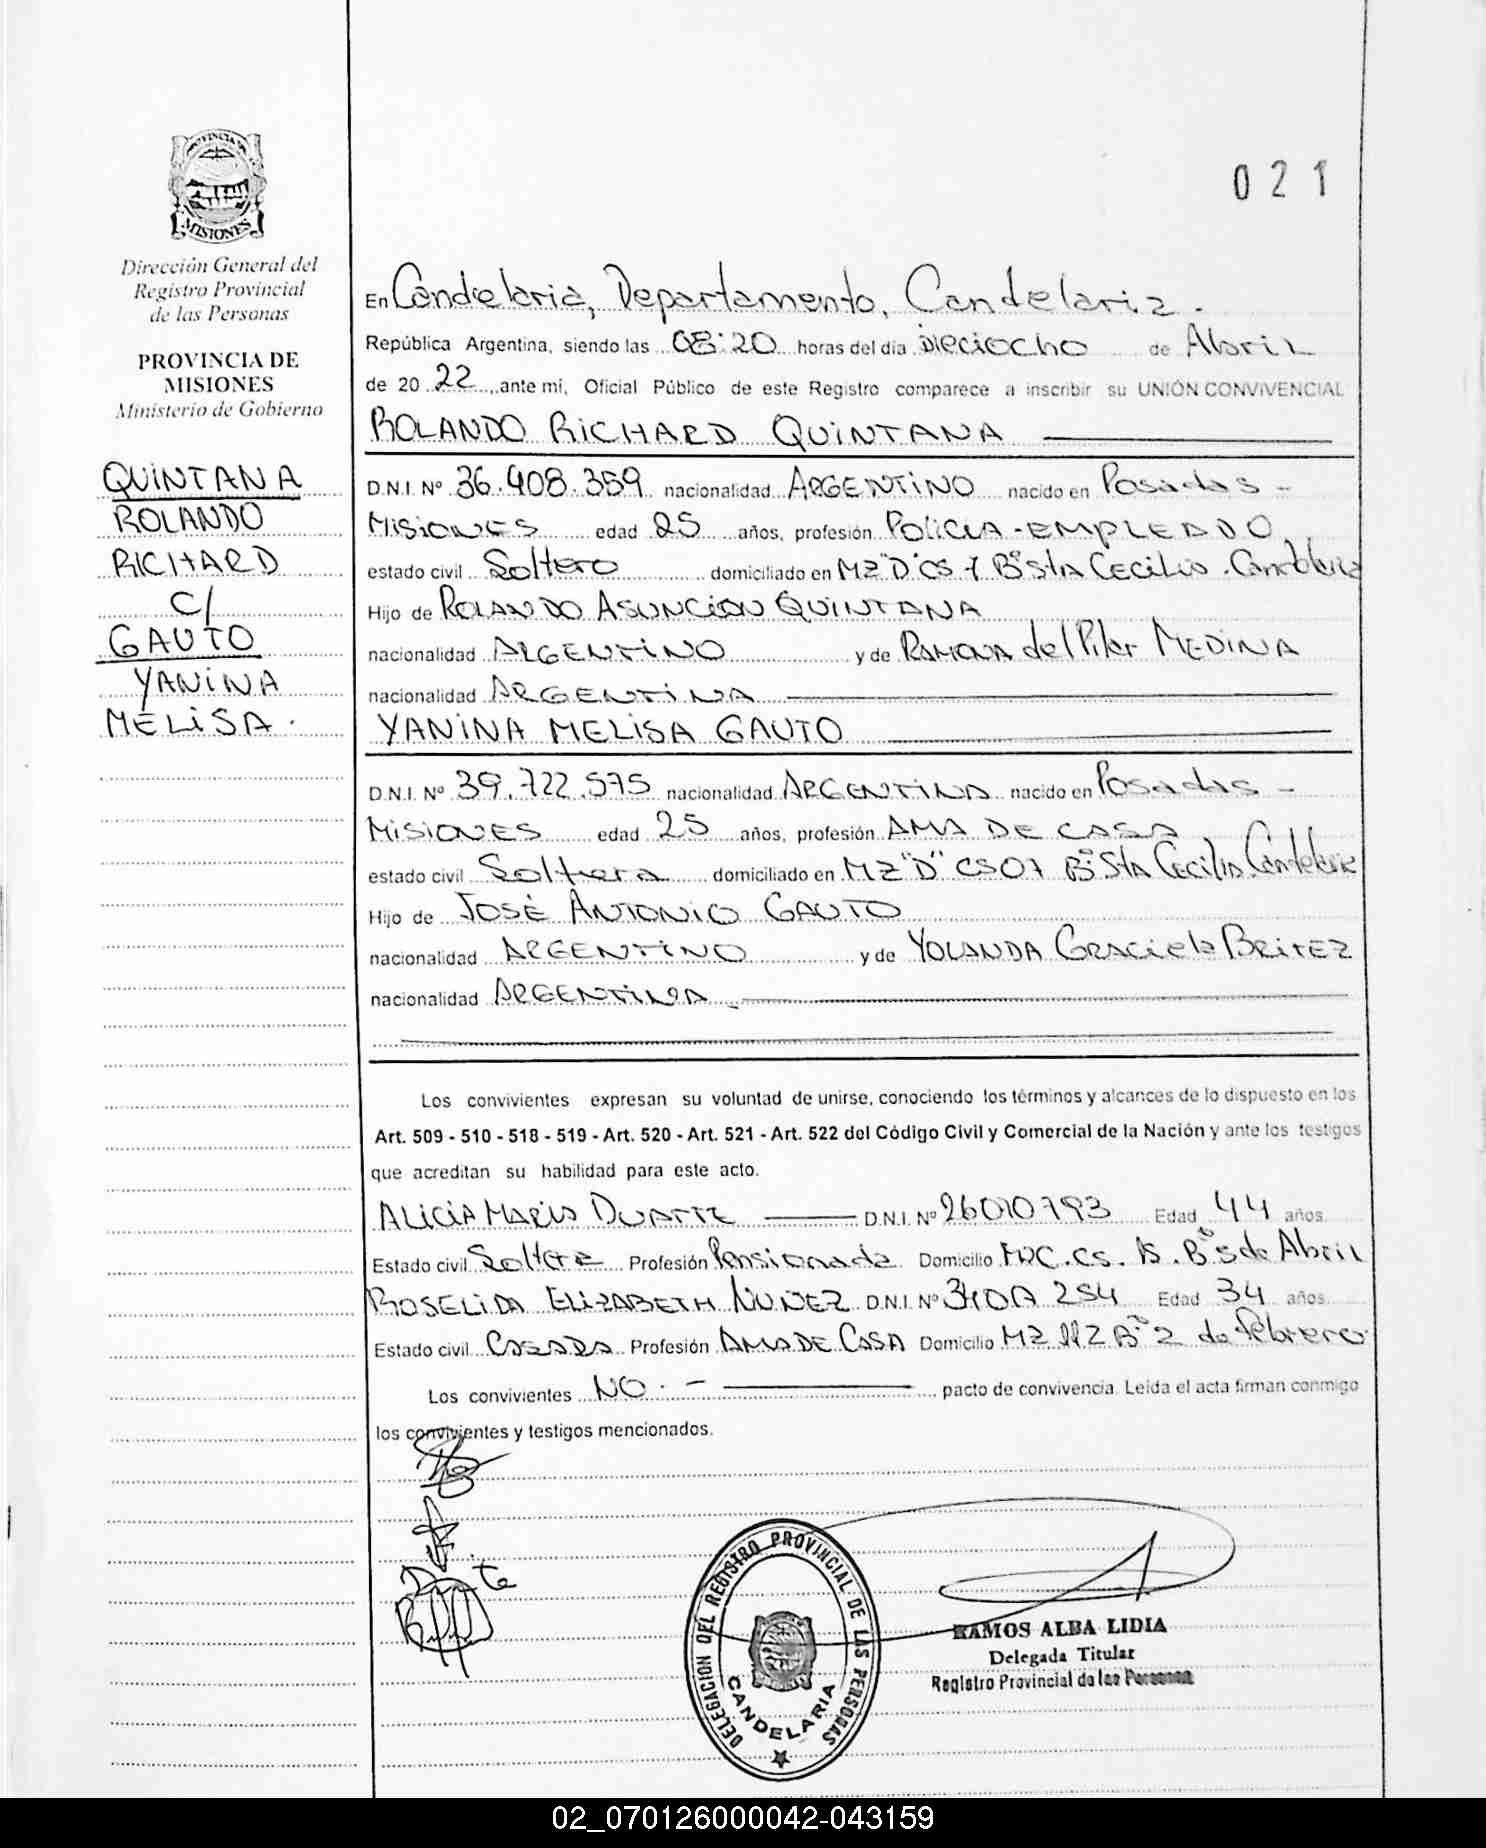 PROVINCIA DE
MISIONES
Dirección General del
Registro Provincial
de las Personas
PROVINCIA DE
MISIONES
Ministerio de Gobierno
QUINTANA
ROLANDO
RICHARD
C/
GAUTO
YANINA
MELISA.
021
En Candelaria, Departamento, Candelaria.
República Argentina, siendo las 08:20 horas del día Dieciocho de Abril
de 2022, ante mi, Oficial Público de este Registro comparece a inscribir su UNIÓN CONVIVENCIAL
ROLANDO RICHARD QUINTANA
D.N.I. Nº 36.408.359 nacionalidad ARGENTINO nacido en Posadas -
MISIONES edad 25 años, profesión POLICIA - EMPLEADO
estado civil Soltero domiciliado en MZ "D" CS 7 Bº Sta Cecilia. Candelaria
Hijo de ROLANDO ASUNCION QUINTANA
nacionalidad ARGENTINO y de RAMONA del Pilar MEDINA
nacionalidad ARGENTINA
YANINA MELISA GAUTO
D.N.I. Nº 39.722.575 nacionalidad ARGENTINA nacido en Posadas -
MISIONES edad 25 años, profesión AMA DE CASA
estado civil Soltera domiciliado en MZ "D" CS 07 Bº Sta Cecilia Candelaria
Hijo de JOSÉ ANTONIO GAUTO
nacionalidad ARGENTINO y de YOLANDA GRACIELA BRITEZ
nacionalidad ARGENTINA
Los convivientes expresan su voluntad de unirse, conociendo los términos y alcances de lo dispuesto en los
Art. 509 - 510 - 518 - 519 - Art. 520 - Art. 521 - Art. 522 del Código Civil y Comercial de la Nación y ante los testigos
que acreditan su habilidad para este acto.
ALICIA MARIA DUARTE D.N.I. Nº 26010793 Edad 44 años
Estado civil Soltera Profesión Pensionada Domicilio CS. 15. Bº 5 de Abril
ROSELIDA ELIZABETH NUÑEZ D.N.I. Nº 254 Edad 34 años
Estado civil CASADA Profesión AMA DE CASA Domicilio MZ Bº 2 de febrero
Los convivientes NO. - pacto de convivencia. Leída el acta firman conmigo
los convivientes y testigos mencionados.
DELEGACION DEL REGISTRO PROVINCIAL DE LAS PERSONAS
CANDELARIA
RAMOS ALBA LIDIA
Delegada Titular
Registro Provincial de las Personas
02_070126000042-043159